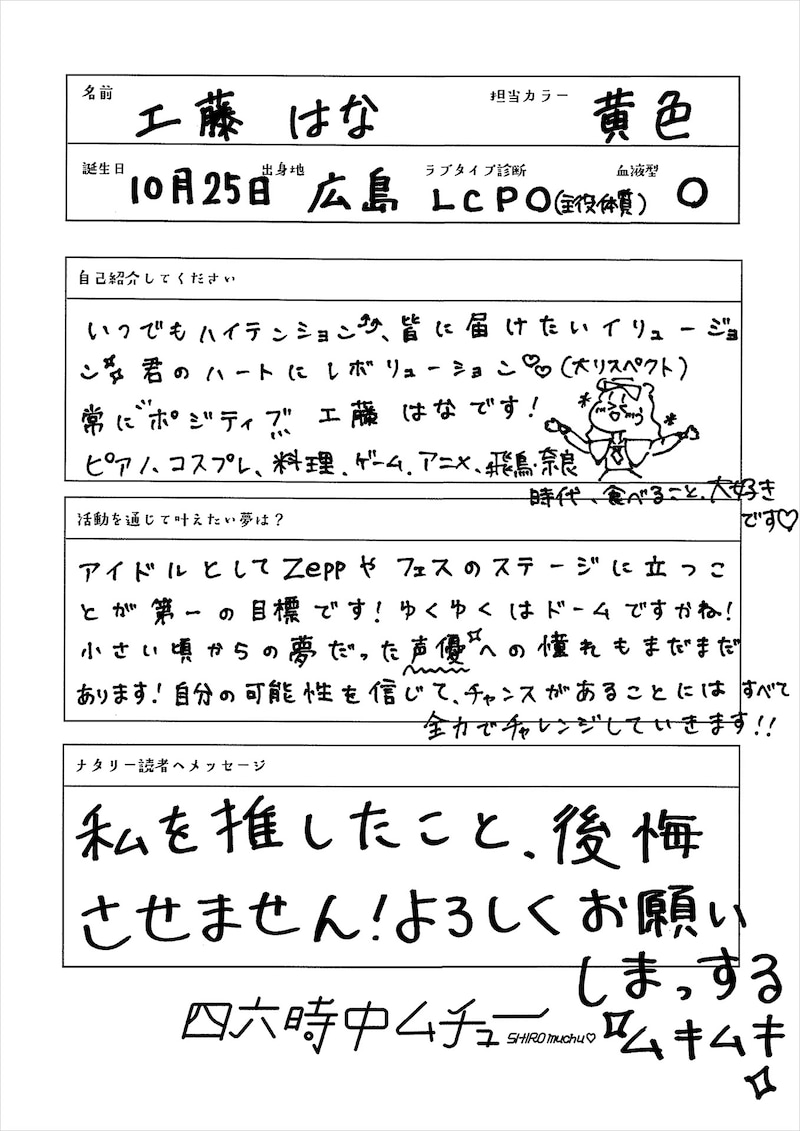 名前 工藤 はな 担当カラー 黄色
誕生日 10月25日 出身地 広島 ラブタイプ診断 LCPO(主役体質) 血液型 O
自己紹介してください
いつでもハイテンション⤴⤴、皆に届けたいイリュージョ
ン 君のハートにレボリューション♡♡(大リスペクト)
常に"ポジティブ" 工藤 はなです!
ピアノ、コスプレ、料理、ゲーム、アニメ、飛鳥奈良
時代、食べること、大好き
です♡
活動を通じて叶えたい夢は?
アイドルとしてZeppやフェスのステージに立つこ
とが第一の目標です!ゆくゆくはドームですかね!
小さい頃からの夢だった声優への憧れもまだまだ
あります!自分の可能性を信じて、チャンスがあることにはすべて
全力でチャレンジしていきます!!
ナタリー読者へメッセージ
私を推したこと、後悔
させません!よろしくお願い
しまっする
ムキムキ
四六時中ムチュー SHIRO muchu♡